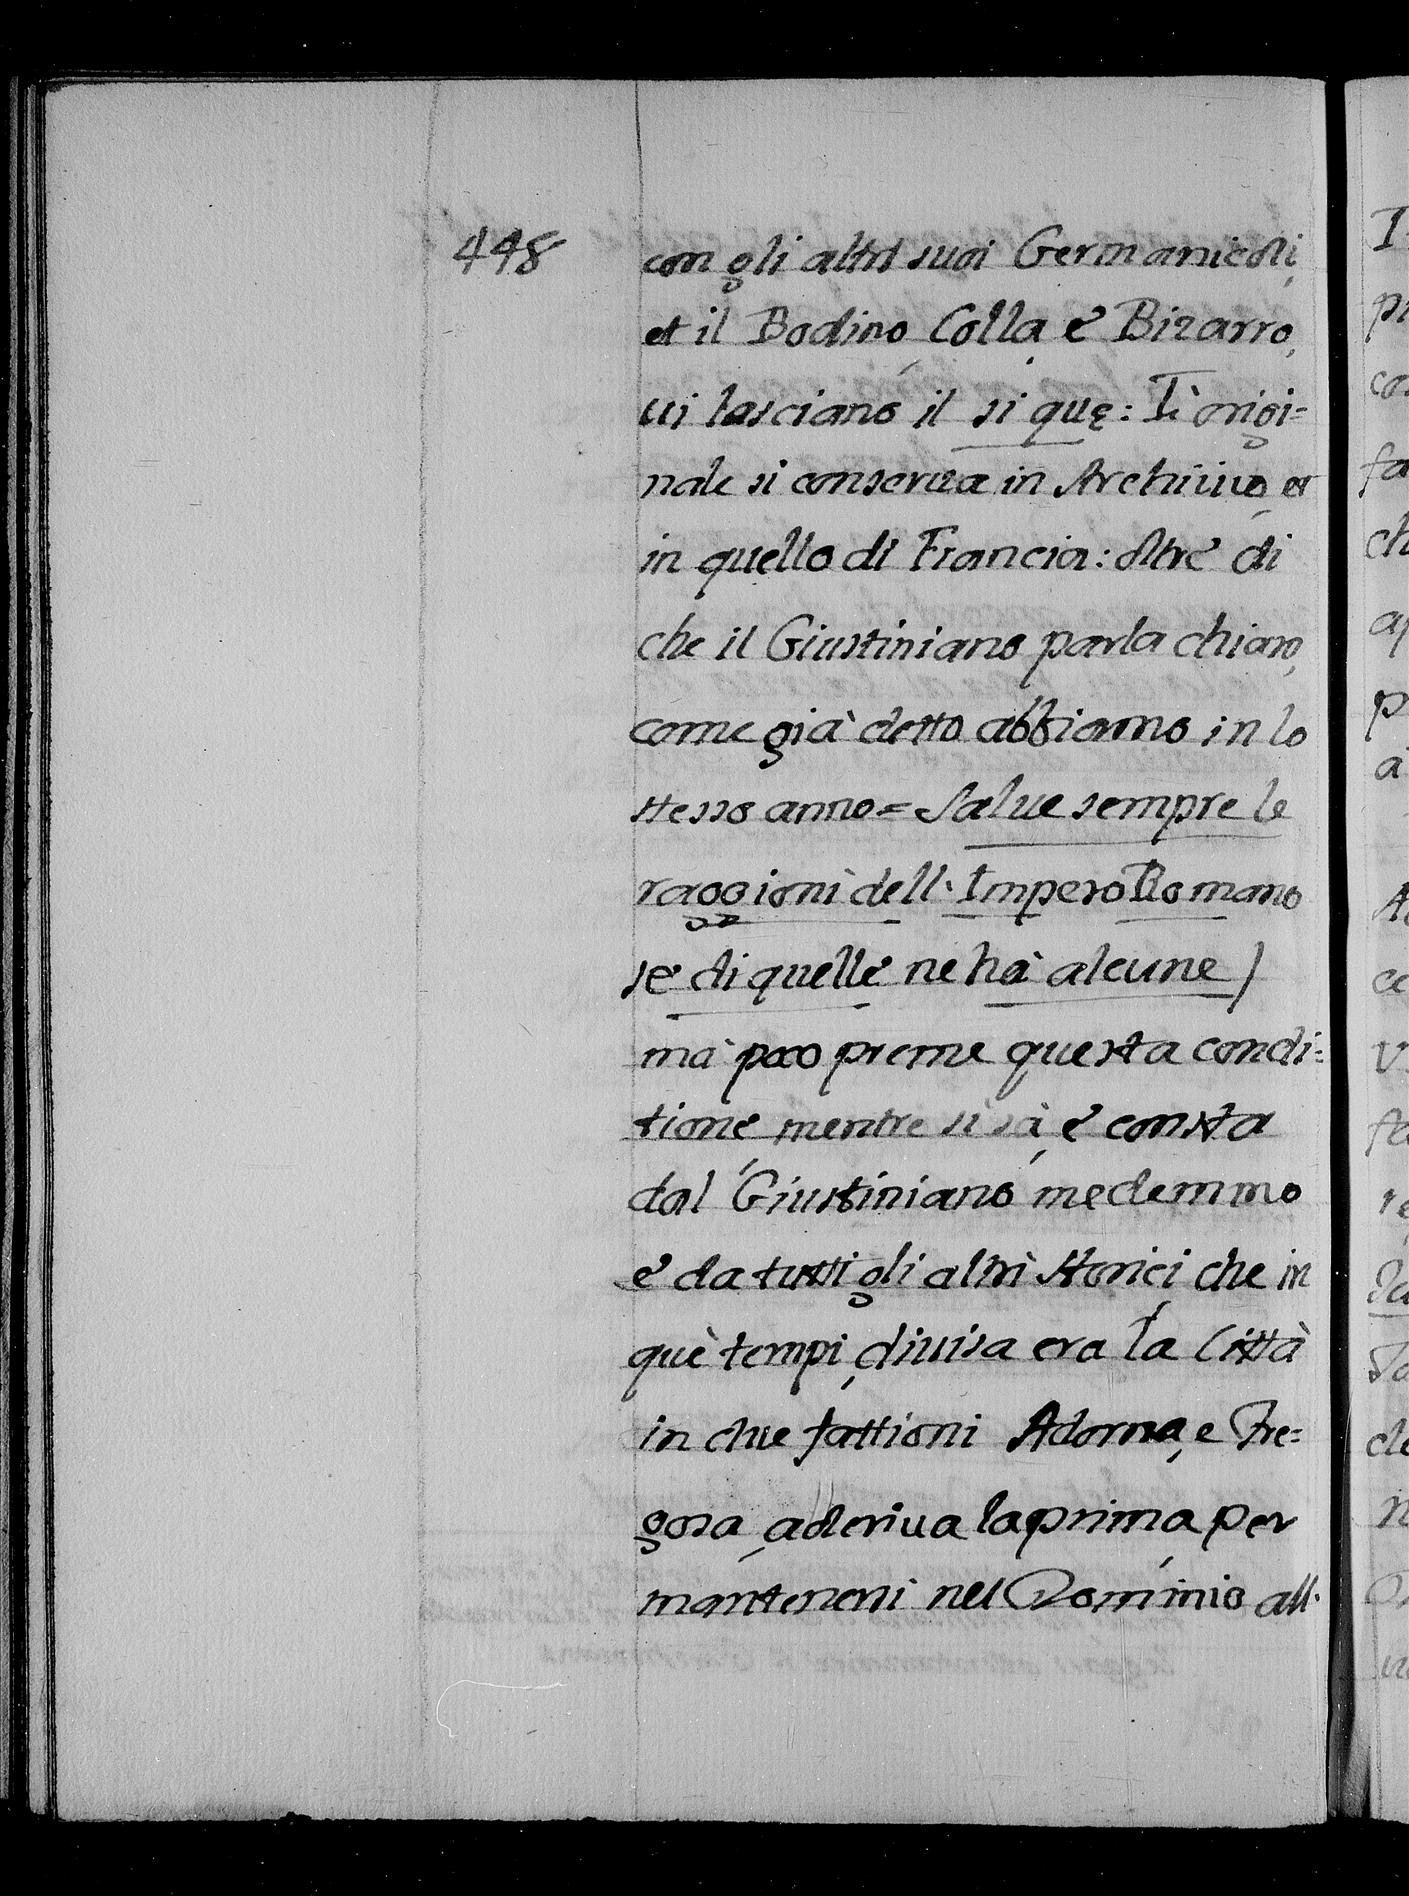 448
con gli altri suoi Germanicoli,
et il Bodino, Colla, e Bizarro,
ui lasciano il si quę: L'origi=
nale si conserua in Archiuio, et
in quello di Francia: oltre di
che il Giustiniano parla chiaro,
come già detto abbiamo in lo
stesso anno = Salue sempre le
raggioni dell'Impero Romano
se di quelle ne hà alcune)
mà poco preme questa condi=
tione, mentre si sà, e consta
dal Giustiniano medemmo
e da tutti gli altri Storici, che in
què tempi, diuisa era la Città
in due fattioni Adorna, e Fre=
gosa, aderiua la prima, per
mantenersi nel Dominio all'